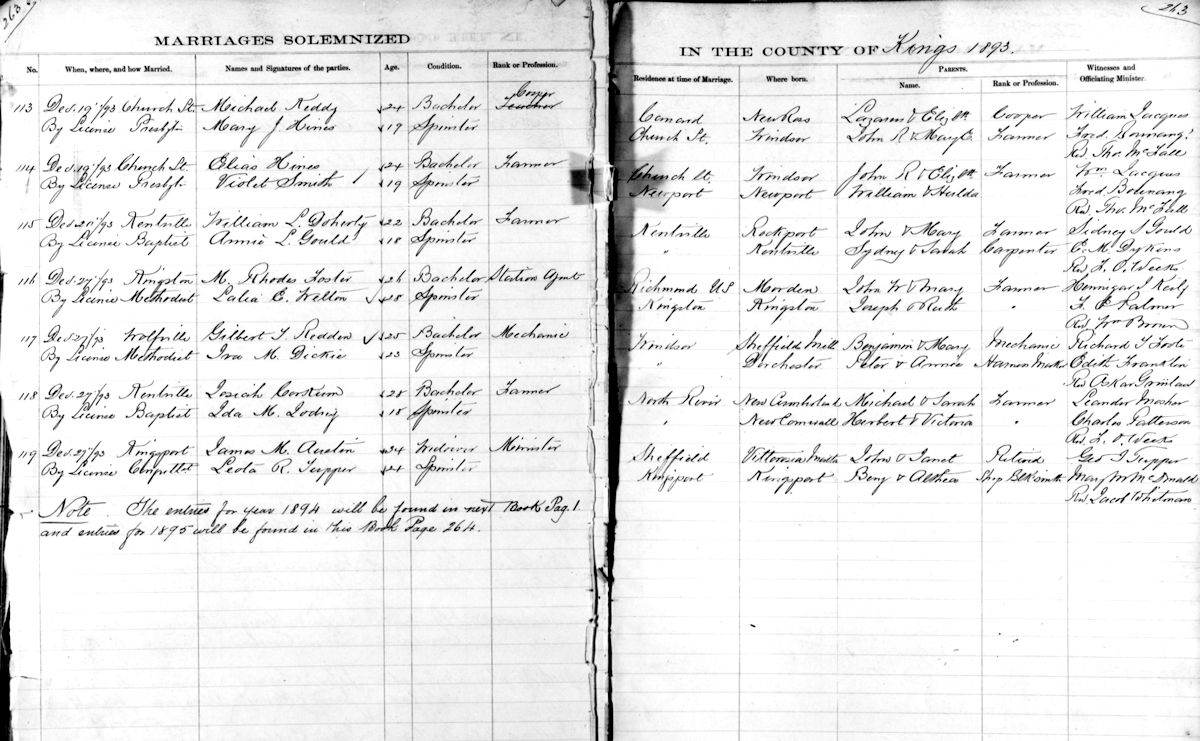 263
MARRIAGES SOLEMNIZED
No. When, where, and how Married. Names and Signatures of the parties. Age. Condition. Rank or Profession.
Cooper
113 Dec. 19th/93 Church St. Michael Keddy 24 Bachelor Teacher
By License Presbytn Mary J. Hines 19 Spinster
114 Dec. 19th/93 Church St. Elias Hines 24 Bachelor Farmer
By License Presbytn Violet Smith 19 Spinster
115 Dec. /93 Kentville William L. Doherty 22 Bachelor Farmer
By License Baptist Annie L. Gould 18 Spinster
116 Dec. 27th/93 Kingston M. Rhodes Foster 26 Bachelor Station Agent
By License Methodist Lalia E. Welton 28 Spinster
117 Dec. 27th/93 Wolfville Gilbert T. Redden 25 Bachelor Mechanic
By License Methodist M. Dickie 23 Spinster
118 Dec. 27th/93 Kentville Josiah Corkum 28 Bachelor Farmer
By License Baptist Ida M. 18 Spinster
119 Dec. 27th/93 Kingsport James M. Austin 34 Widower Minister
By License Leola R. Tupper 24 Spinster
Note. The entries for year 1894 will be found in next Book Pag. 1.
and entries for 1895 will be found in this Book Page 264.
263
IN THE COUNTY OF Kings 1893.
Residence at time of Marriage. Where born. PARENTS. Name. Rank or Profession. Witnesses and Officiating Minister.
Canard New Ross Lazarus & Elizth Cooper William Jacques
Church St. Windsor John R & Mary E. Farmer Fred
Rev. Tho. McFall
Church St. Windsor John R & Elizth Farmer Wm Jacques
Newport Newport William & Hulda Fred
Rev. Tho. McFall
Kentville Rockport John & Mary Farmer Sidney S Gould
" Kentville Sydney & Sarah Carpenter C. M. Dykens
Rev. L. O. Weeks
Richmond US Morden John W & Mary Farmer Hennigar
Kingston Kingston Joseph & Ruth " F. E. Palmer
Rev. Wm Brown
Windsor Sheffield Mills Benjamin & Mary Mechanic Richard T.
" Dorchester Peter & Annie Harness Maker Edith Franklin
Rev. Oskar
North River New Michael & Sarah Farmer Leander Mosher
" New Cornwall Herbert & Victoria " Charles Patterson
Rev. L. O. Weeks
Sheffield Vittoriosa Malta John & Janet Retired Geo J. Tupper
Kingsport Kingsport Benj & Althea Ship Blksmith Mary M McDonald
Rev. Jacob Whitman